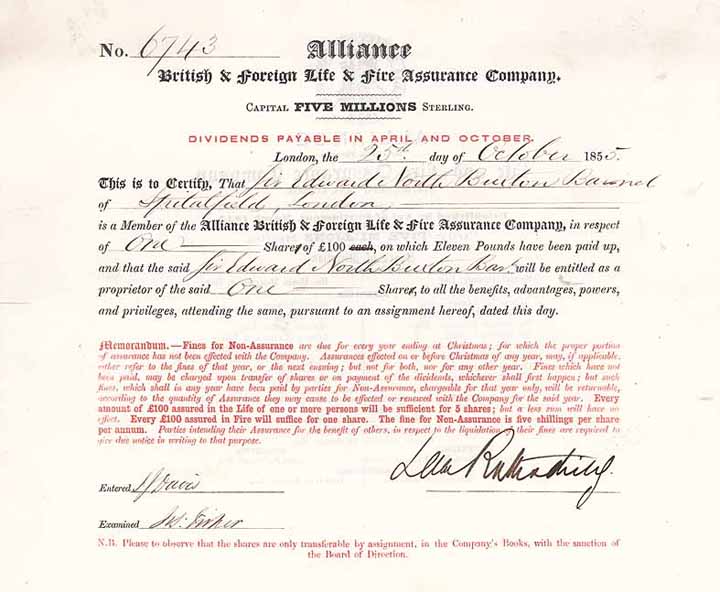 No. 6743
Alliance
British & Foreign Life & Fire Assurance Company.
Capital FIVE MILLIONS Sterling.
DIVIDENDS PAYABLE IN APRIL AND OCTOBER.
London, the 25th day of October 1855.
This is to Certify, That Sir Edward North Buxton Baronet
of Spitalfield, London,
is a Member of the Alliance British & Foreign Life & Fire Assurance Company, in respect
of One Share of £100 each, on which Eleven Pounds have been paid up,
and that the said Sir Edward North Buxton Bar. will be entitled as a
proprietor of the said One Share, to all the benefits, advantages, powers,
and privileges, attending the same, pursuant to an assignment hereof, dated this day.
Memorandum.—Fines for Non-Assurance are due for every year ending at Christmas; for which the proper portion
of assurance has not been effected with the Company. Assurances effected on or before Christmas of any year, may, if applicable,
either refer to the fines of that year, or the next ensuing; but not for both, nor for any other year. Fines which have not
been paid, may be charged upon transfer of shares or on payment of the dividends, whichever shall first happen; but such
fines, which shall in any year have been paid by parties for Non-Assurance, chargeable for that year only, will be returnable,
according to the quantity of Assurance they may cause to be effected or renewed with the Company for the said year. Every
amount of £100 assured in the Life of one or more persons will be sufficient for 5 shares; but a less sum will have no
effect. Every £100 assured in Fire will suffice for one share. The fine for Non-Assurance is five shillings per share
per annum. Parties intending their Assurance for the benefit of others, in respect to the liquidation of their fines are required to
give due notice in writing to that purpose.
Entered Davis
Examined Fisher
N.B. Please to observe that the shares are only transferable by assignment, in the Company's Books, with the sanction of
the Board of Direction.